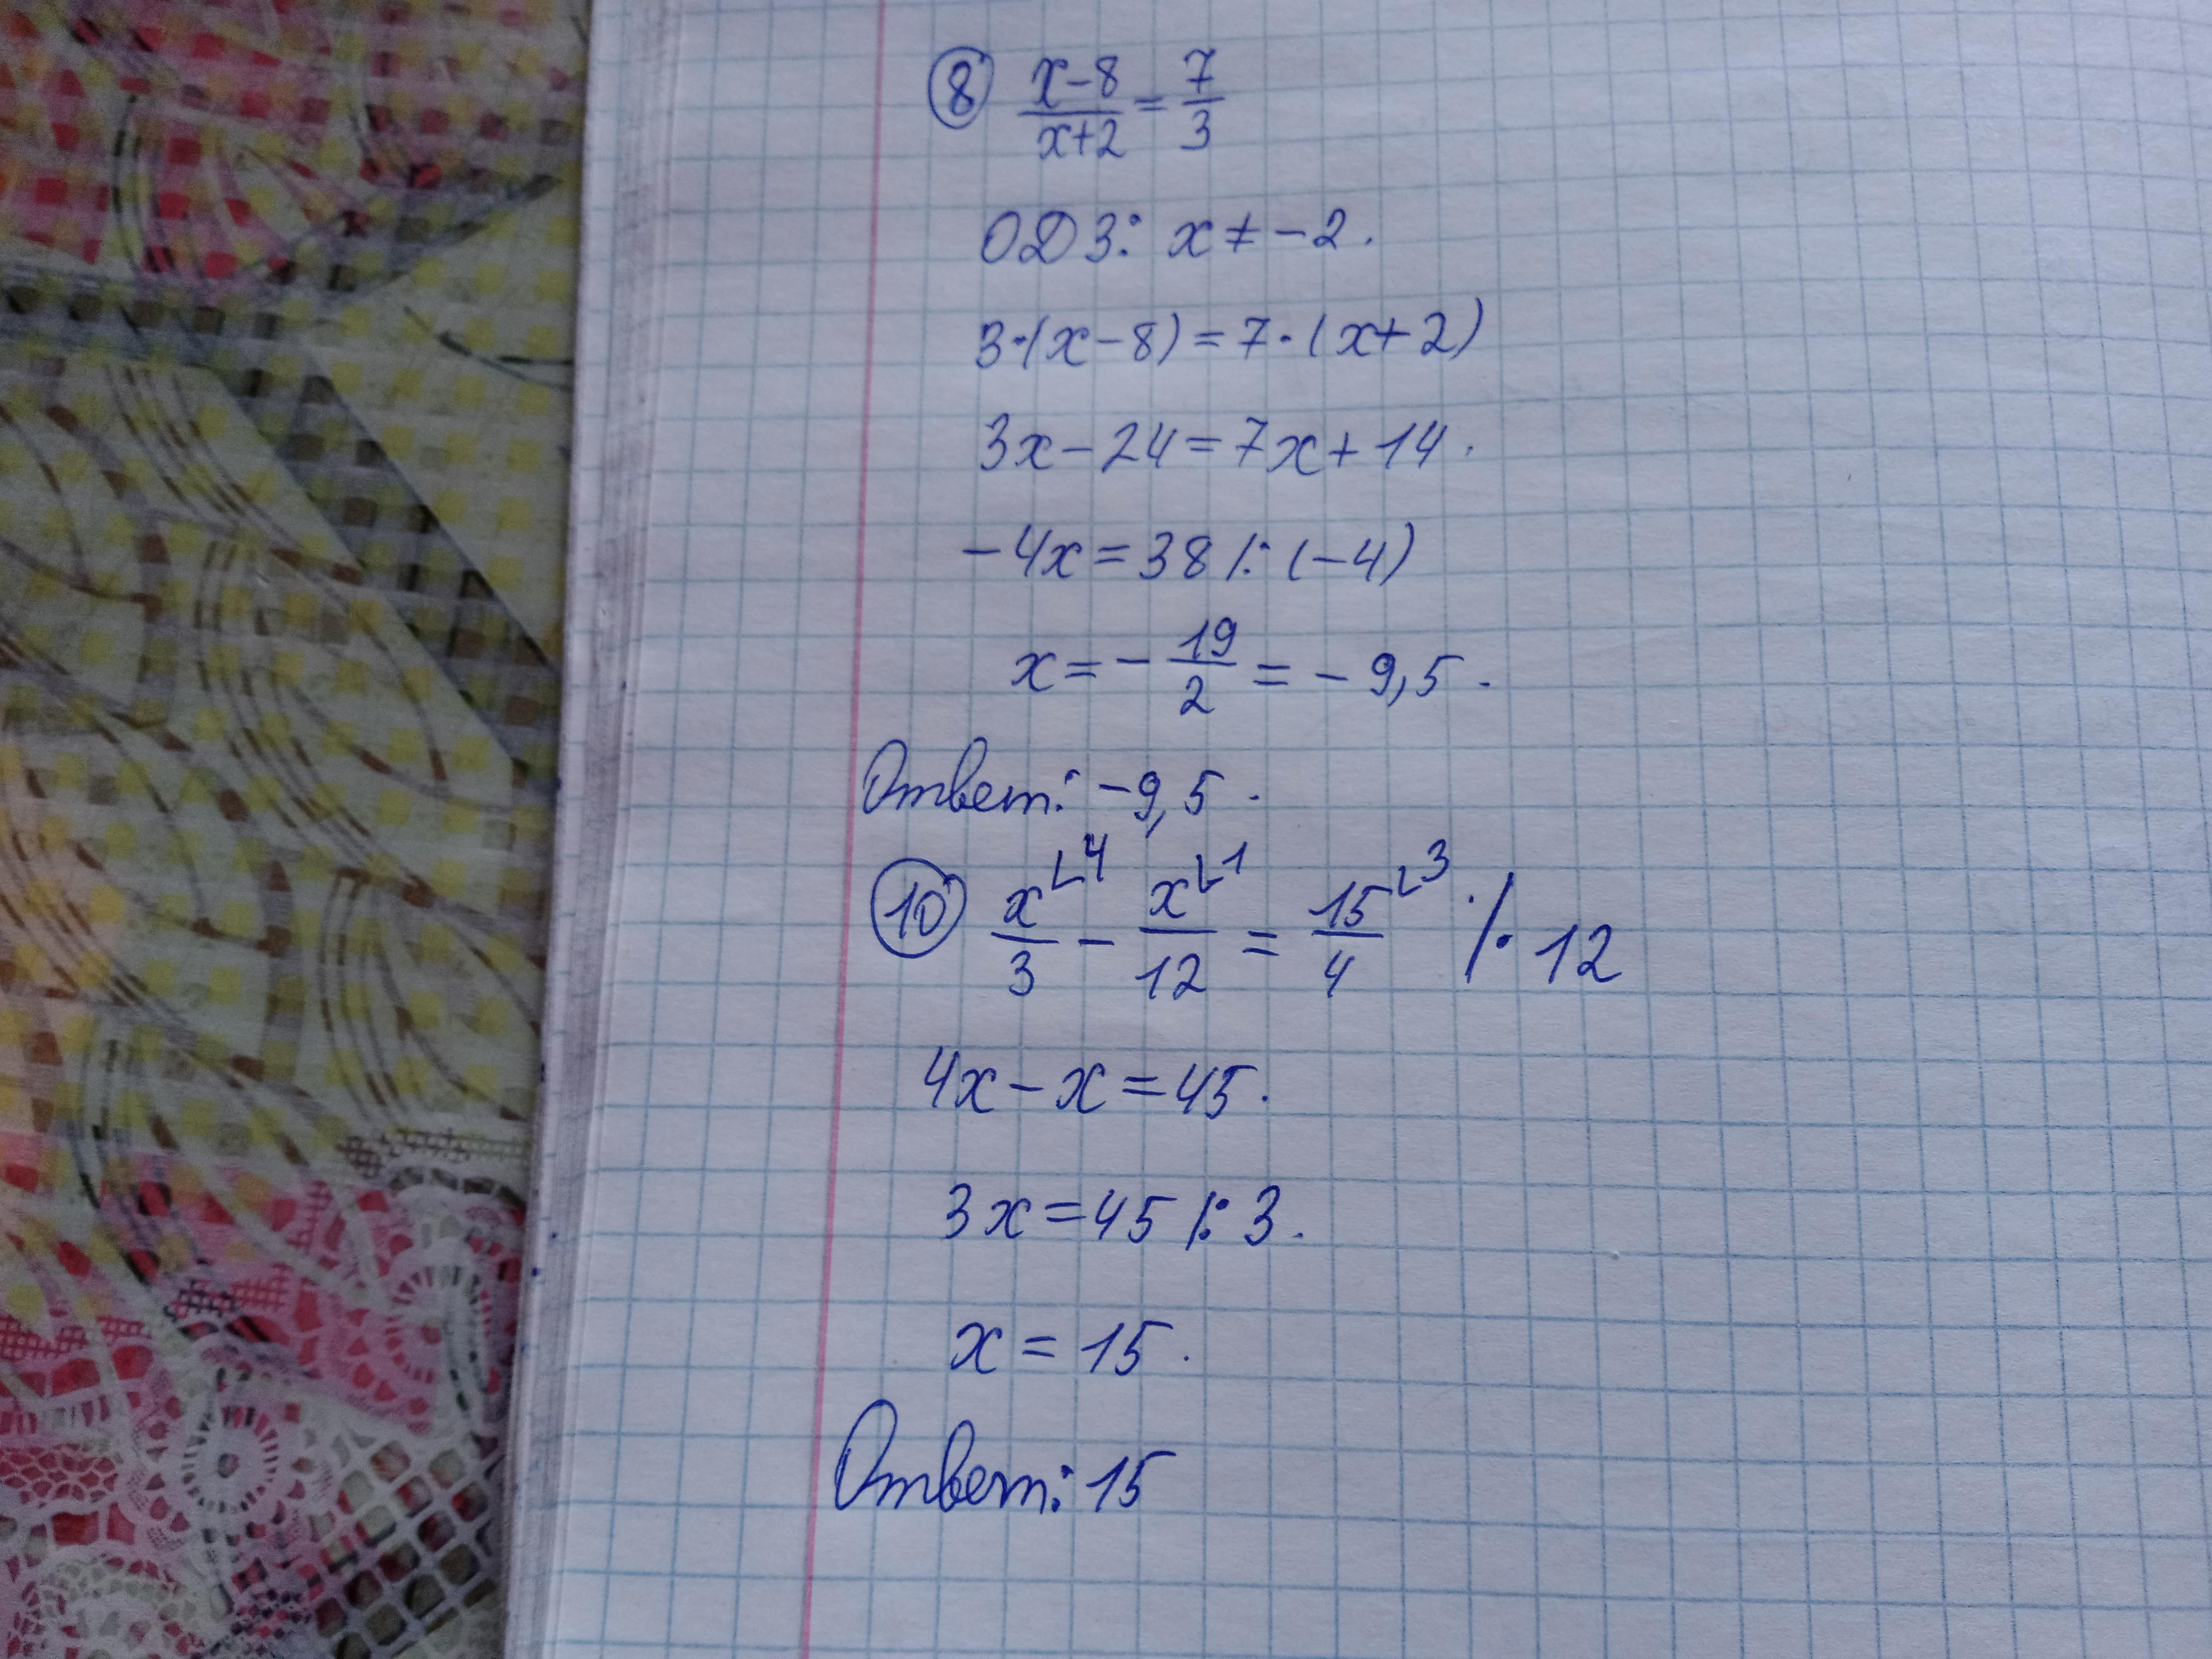 ⑧ (x-8)/(x+2) = 7/3
ОДЗ: x ≠ -2.
3·(x-8) = 7·(x+2)
3x-24 = 7x+14.
-4x = 38 /: (-4)
x = - 19/2 = -9,5.
Ответ: -9,5.
⑩ x/3 ⌞4 - x/12 ⌞1 = 15/4 ⌞3 /· 12
4x-x = 45.
3x = 45 /: 3.
x = 15.
Ответ: 15